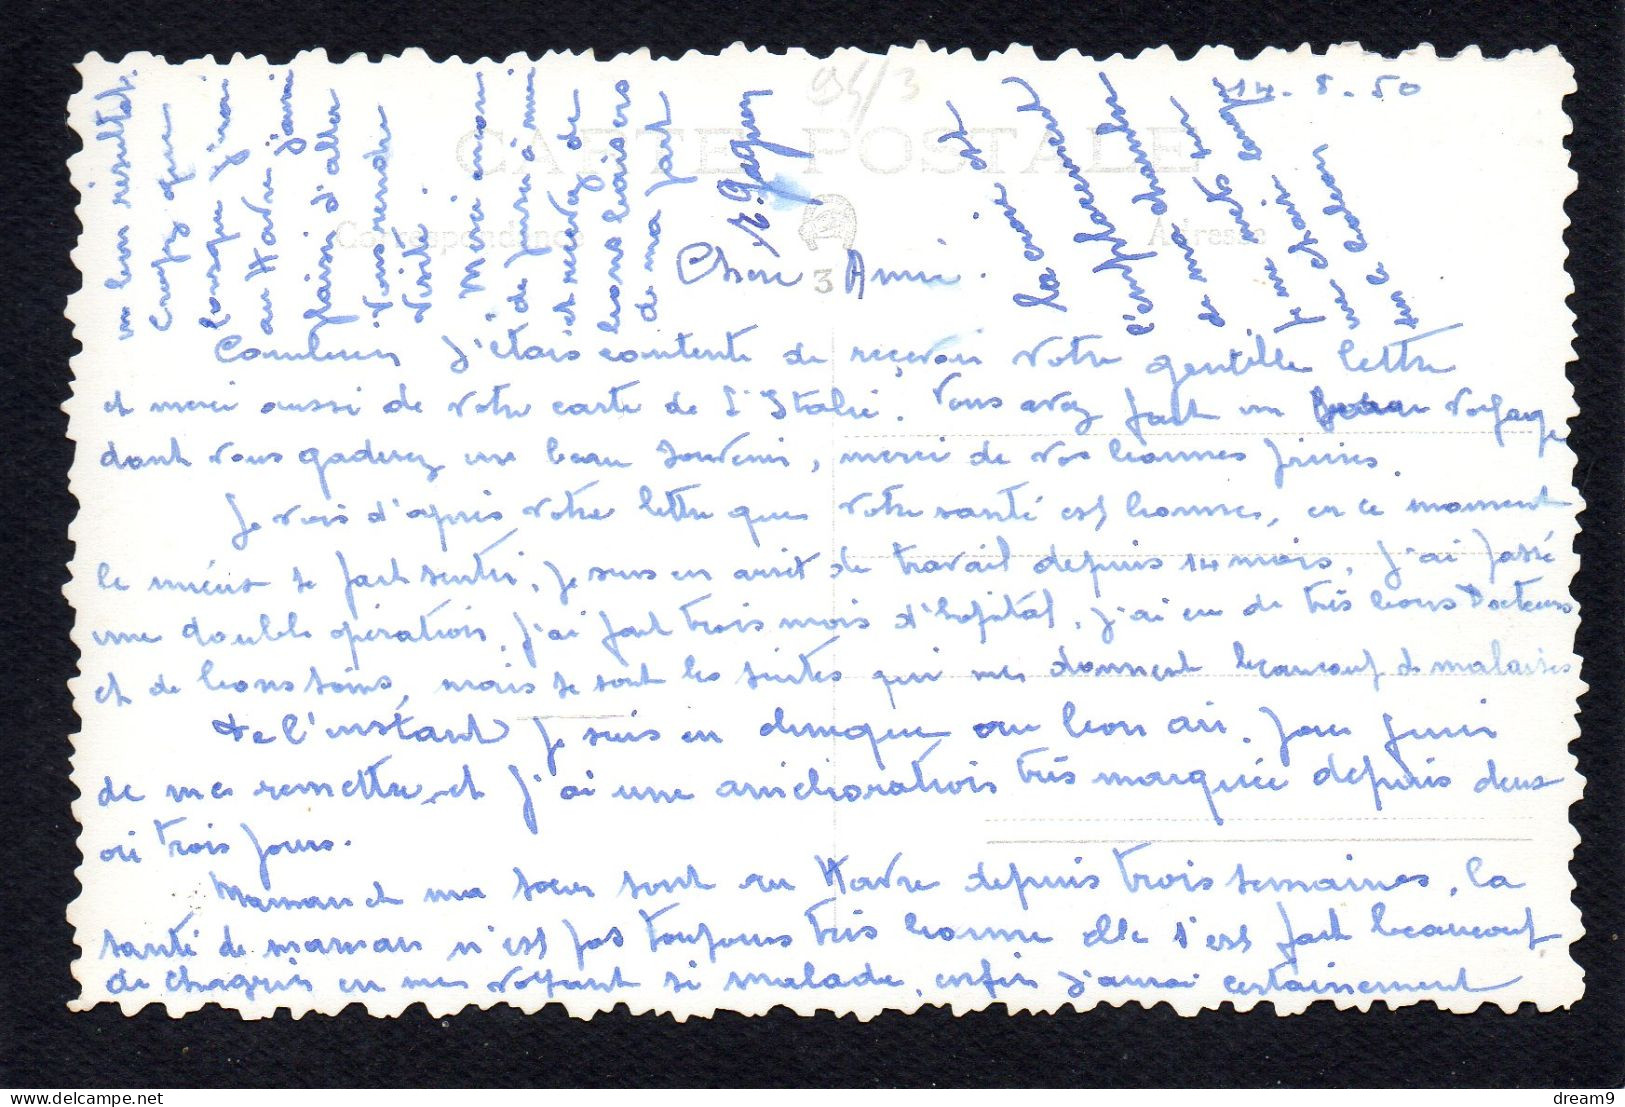 14-8-50
94/3
CARTE POSTALE
Correspondance
Adresse
3
Chère Amie.
Combien j'étais contente de reçevoir votre gentille lettre
et merci aussi de votre carte de L'Italie. Vous avez fait un beau voyage
dont vous gaderez un beau souvenir, merci de vos bonnes prières.
Je vois d'après votre lettre que votre santé est bonne, en ce moment
le mieux se fait sentir, je suis en arrêt de travail depuis 14 mois, j'ai passé
une double opération, j'ai fait trois mois d'hopital, j'ai eu de très bons Docteurs
et de bons soins, mais se sont les suites qui me donnent beaucoup de malaises
de l'instant je suis en au bon air, pour finir
de me remettre, et j'ai une amélioration très marquée depuis deux
ou trois jours.
Maman et ma sœur sont au Havre depuis trois semaines, la
santé de maman n'est pas toujours très bonne elle s'est fait beaucoup
de chagrin en me voyant si malade, enfin j'aurai certainement
un bon résultat.
Croyez que
lorsque j'irai
au Havre j'aurai
plaisir d'aller
vous rendre
visite.
Merci encore
de
et recevez de
bons baisers
de ma part
la croix et
l'emplacement
de ma chambre
je me mets sur
une chaise longue
sur le balcon